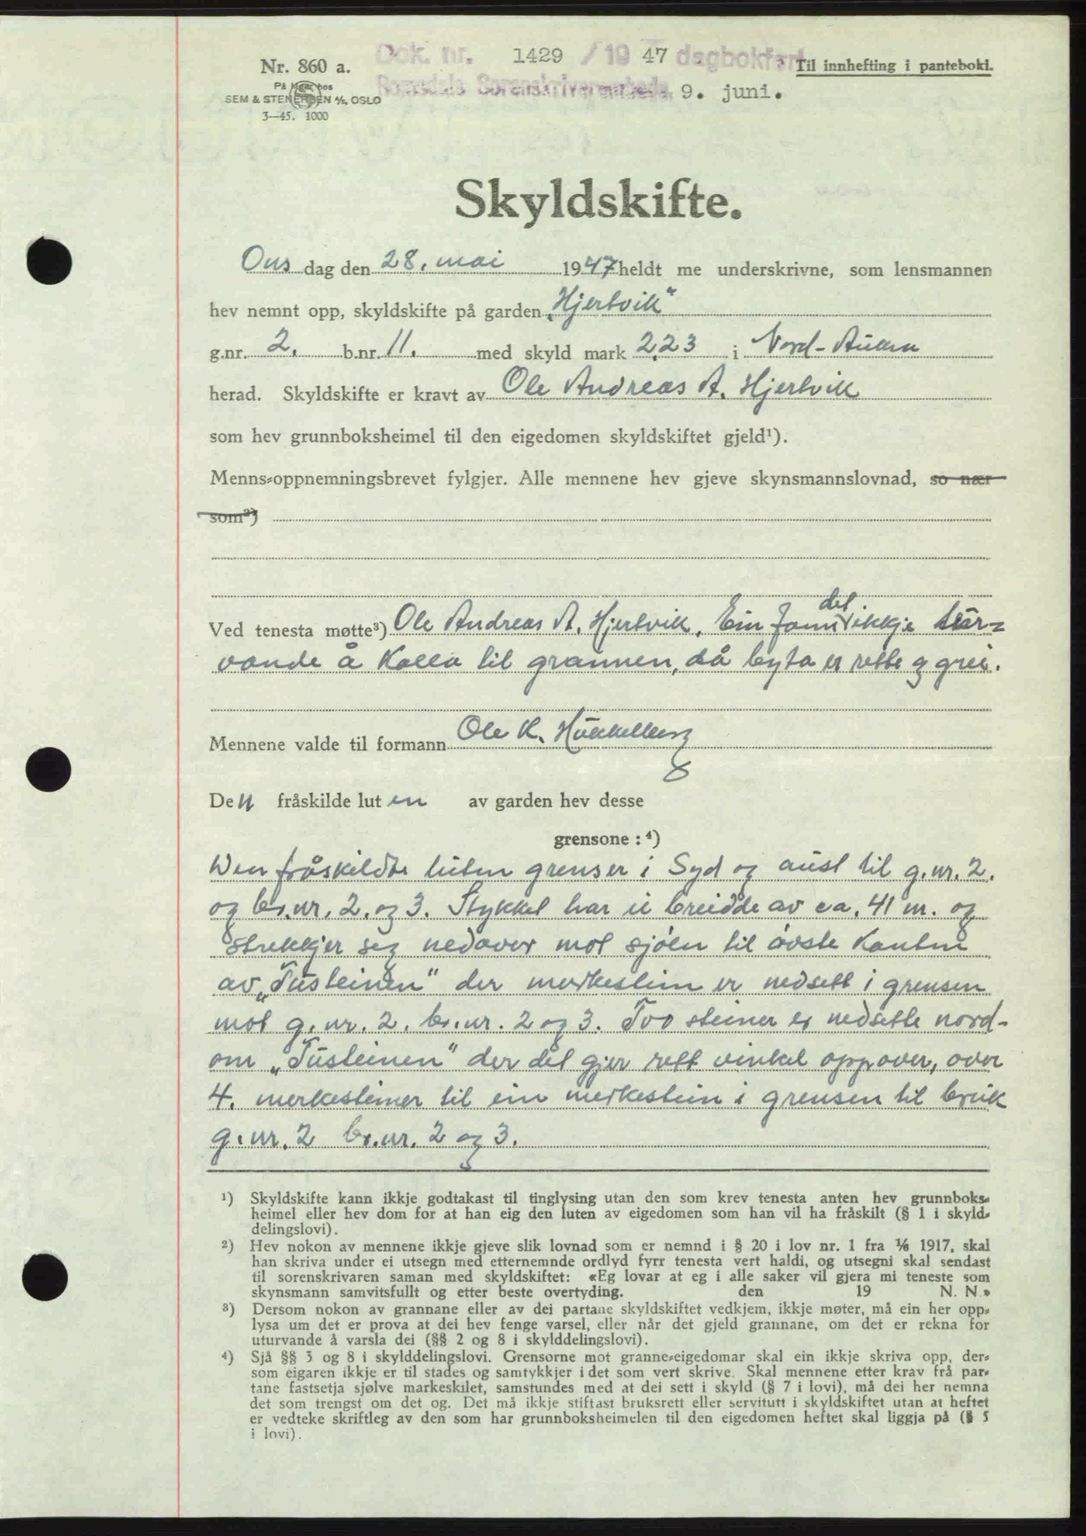 Dok. nr. 1429 / 19 47 dagbokført
Nr. 860 a.
Til innhefting i panteboki.
På lager hos
Romsdals Sorenskriverembede 9. juni.
SEM & STENERSEN A/S, OSLO
3—45. 1000
Skyldskifte.
Ons dag den 28. mai 1947 heldt me underskrivne, som lensmannen
hev nemnt opp, skyldskifte på garden „Hjertvik"
g.nr. 2. b.nr. 11. med skyld mark 2,23 i Nord-Aukra
herad. Skyldskifte er kravt av Ole Andreas A. Hjertvik
som hev grunnboksheimel til den eigedomen skyldskiftet gjeld¹).
Menns-oppnemningsbrevet fylgjer. Alle mennene hev gjeve skynsmannslovnad, so nær
som²)
Ved tenesta møtte³) Ole Andreas A. Hjertvik. Ein fann det ikkje tur-
vande å kalla til grannen, då byta er rette og grei.
Mennene valde til formann Ole K. Hukkelberg
Den fråskilde luten av garden hev desse
grensone :⁴)
Den fråskildte luten grenser i Syd og aust til g.nr. 2.
og br.nr. 2. og 3. Stykket har ei breidde av ca. 41 m. og
strekkjer seg nedover mot sjöen til övste kanten
av „Tusteinen" der merkestein er nedsett i grensen
mot g.nr. 2. br.nr. 2 og 3. Tvo steiner er nedsette nord-
om „Tusteinen" der det gjer rett vinkel oppover, over
4. merkesteiner til ein merkestein i grensen til bruk
g.nr. 2 br.nr. 2 og 3.
¹) Skyldskifte kann ikkje godtakast til tinglysing utan den som krev tenesta anten hev grunnboks-
heimel eller hev dom for at han eig den luten av eigedomen som han vil ha fråskilt (§ 1 i skyld-
delingslovi).
²) Hev nokon av mennene ikkje gjeve slik lovnad som er nemnd i § 20 i lov nr. 1 fra 1/6 1917, skal
han skriva under ei utsegn med etternemnde ordlyd fyrr tenesta vert haldi, og utsegni skal sendast
til sorenskrivaren saman med skyldskiftet: «Eg lovar at eg i alle saker vil gjera mi teneste som
skynsmann samvitsfullt og etter beste overtyding. den 19 N. N.»
³) Dersom nokon av grannane eller av dei partane skyldskiftet vedkjem, ikkje møter, må ein her opp-
lysa um det er prova at dei hev fenge varsel, eller når det gjeld grannane, om det er rekna for
uturvande å varsla dei (§§ 2 og 8 i skylddelingslovi).
⁴) Sjå §§ 3 og 8 i skylddelingslovi. Grensorne mot granne-eigedomar skal ein ikkje skriva opp, der-
som eigaren ikkje er til stades og samtykkjer i det som vert skrive. Skal mennene etter krav frå par-
tane fastsetja sjølve markeskilet, samstundes med at dei sett i skyld (§ 7 i lovi), må dei her nemna
det som trengst om det og. Det må ikkje stiftast bruksrett eller servitutt i skyldskiftet utan at heftet
er vedteke skriftleg av den som har grunnboksheimelen til den eigedomen heftet skal liggja på (§ 5
i lovi).